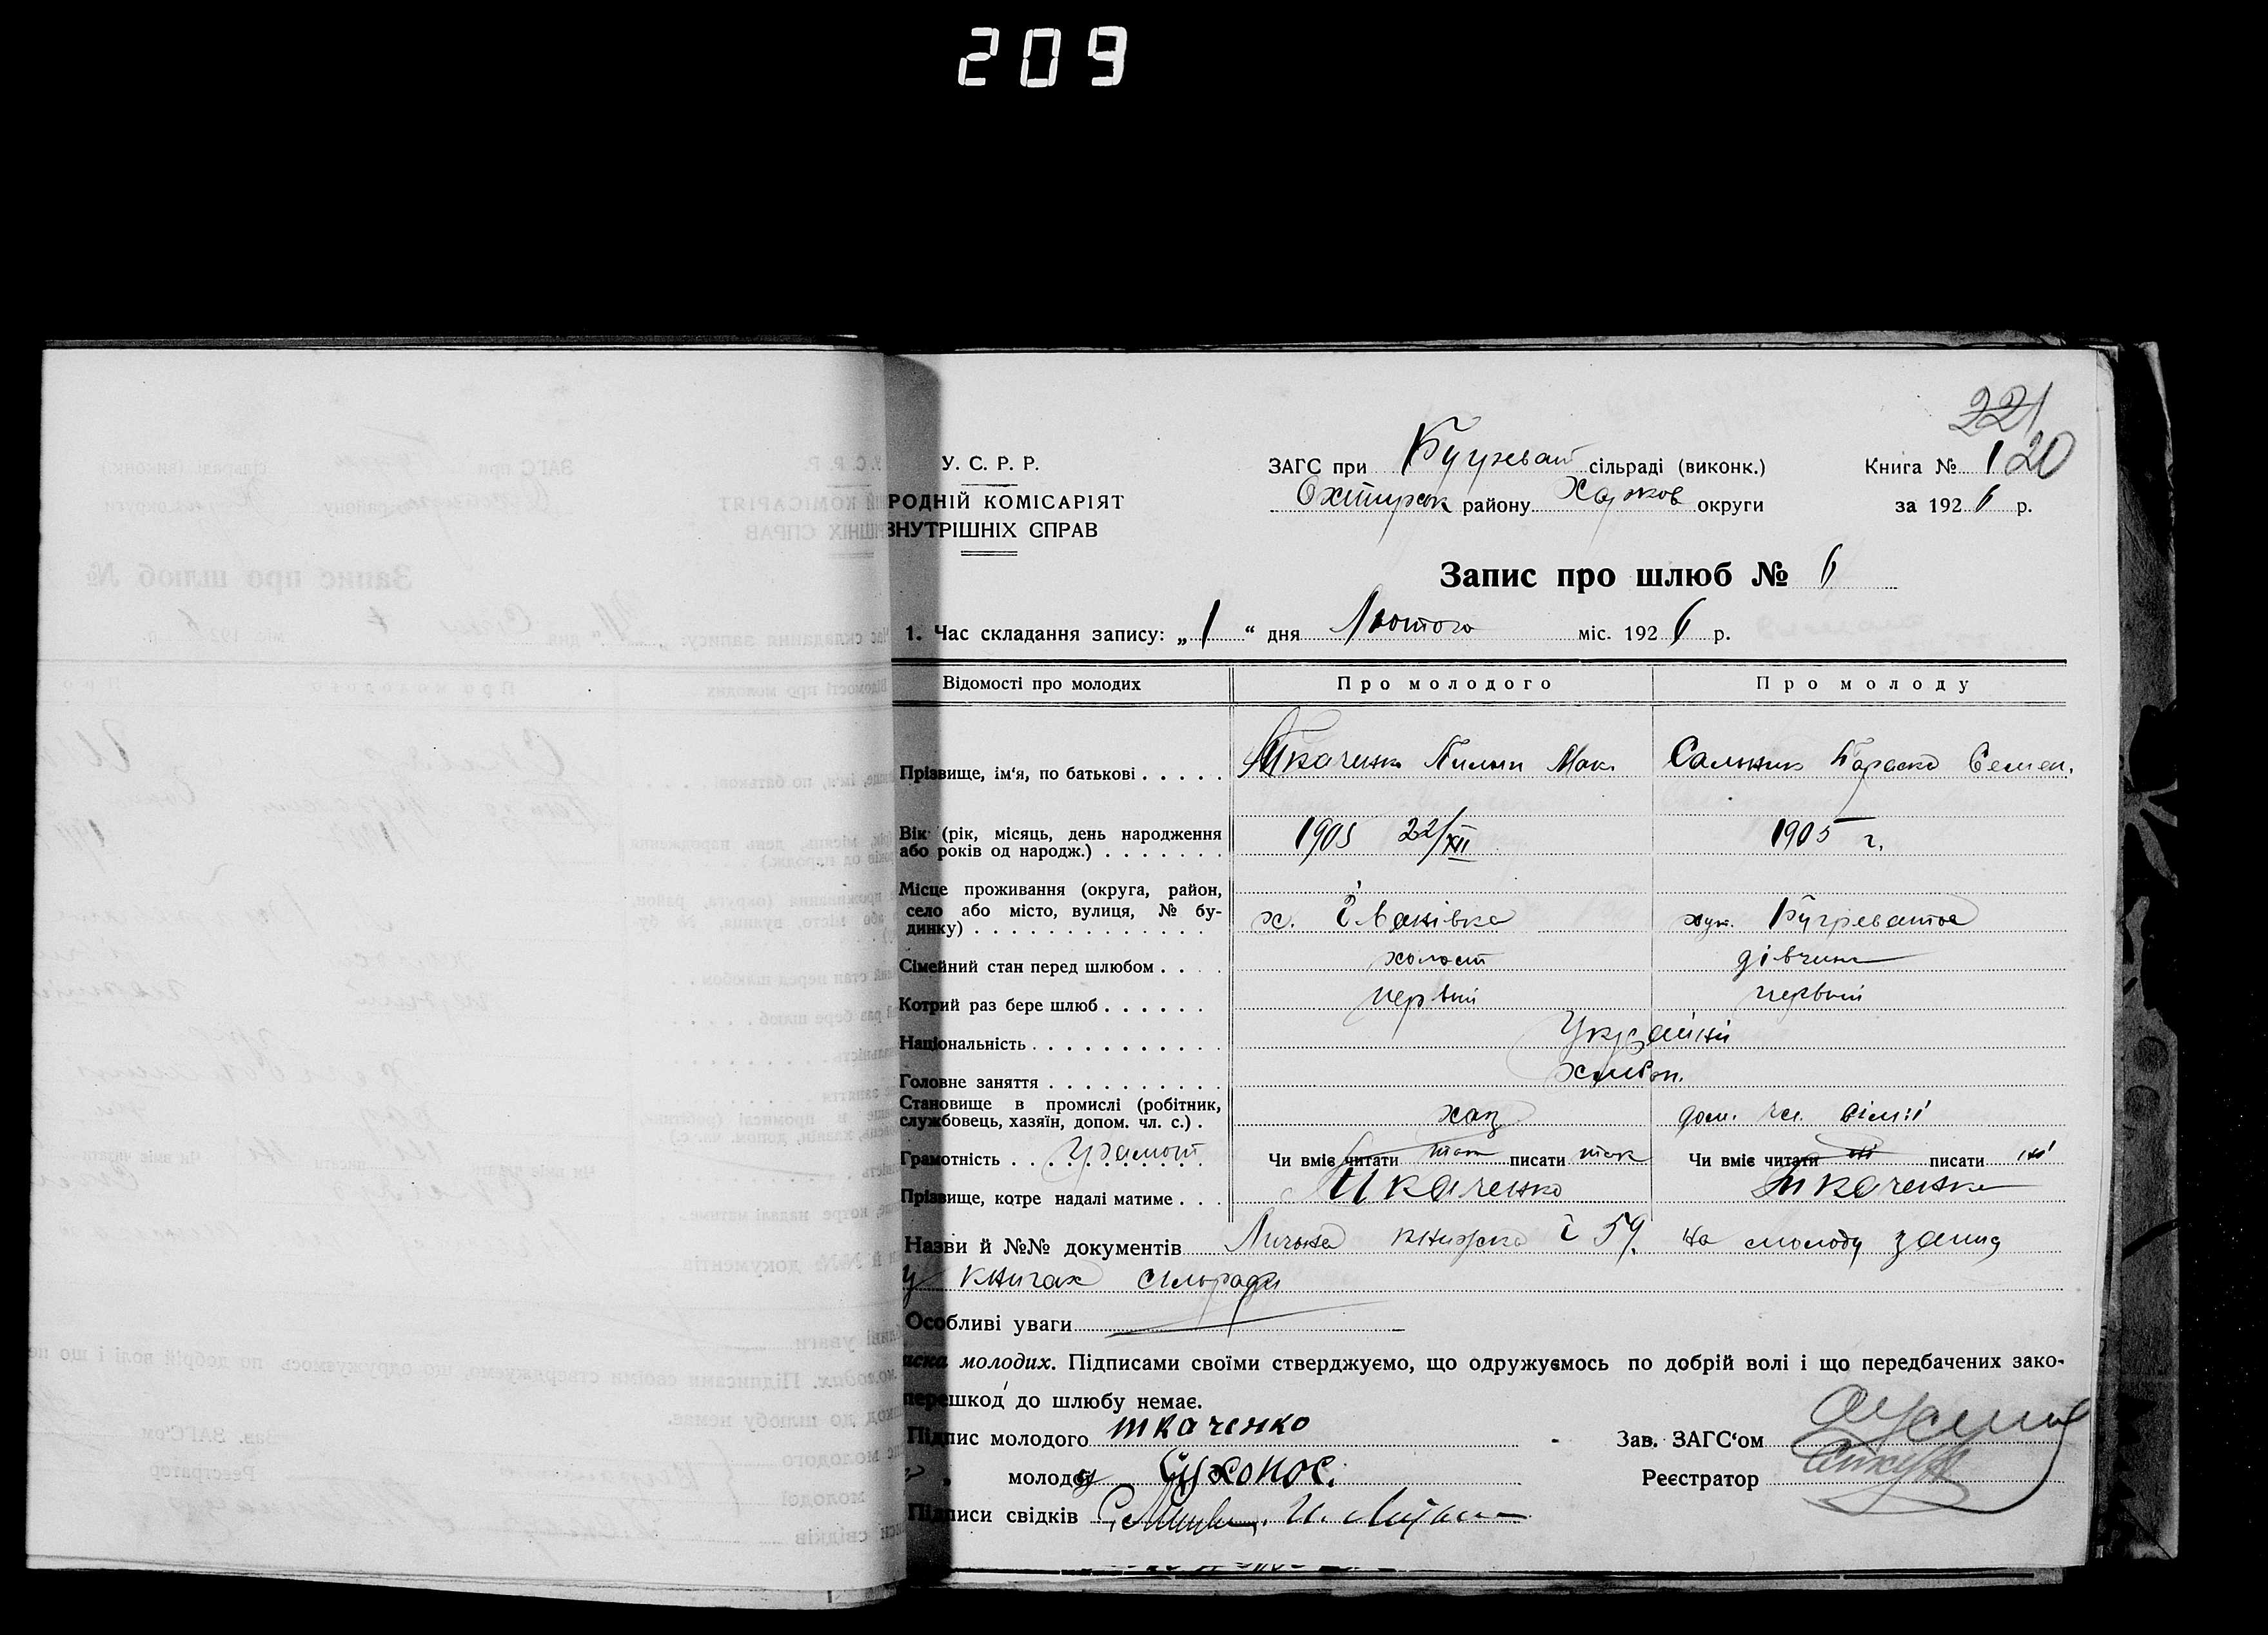 209
221
У. С. Р. Р. ЗАГС при сільраді (виконк.) Книга № 1 20
РОДНІЙ КОМІСАРІЯТ Охтирск району Харков округи за 1926 р.
ВНУТРІШНІХ СПРАВ
Запис про шлюб № 6
1. Час складання запису: „1“ дня Лютого міс. 1926 р.
Відомості про молодих Про молодого Про молоду
Прізвище, ім‘я, по батькові . . . . . Ткаченко Пилип Мак. Сальник Параска Семен.
Вік (рік, місяць, день народження
або років од народж.) . . . . . . . 1905 22/XII 1905 г.
Місце проживання (округа, район,
село або місто, вулиця, № бу-
динку) . . . . . . . . . . . . . х. Іванівка хут. Бугревате
Сімейний стан перед шлюбом . . . . холост дівчина
Котрий раз бере шлюб . . . . . . первий первий
Національність . . . . . . . . . . . Україніи
Головне заняття . . . . . . . . . . Хлібор.
Становище в промислі (робітник,
службовець, хазяїн, допом. чл. с.) . хаз дом. чл. сімії
Грамотність . . . . . . . . . . Грамот Чи вміє читати так писати так Чи вміє читати ні писати ні
Прізвище, котре надалі матиме . . . Ткаченко Ткаченко
Назви й №№ документів Лична книжка і 59. на молоду запис
у книгах сільради
Особливі уваги
иска молодих. Підписами своїми стверджуємо, що одружуємось по добрій волі і що передбачених зако-
перешкод до шлюбу немає.
Підпис молодого ткаченко Зав. ЗАГС‘ом
„ молодої Сухонос. Реєстратор
Підписи свідків